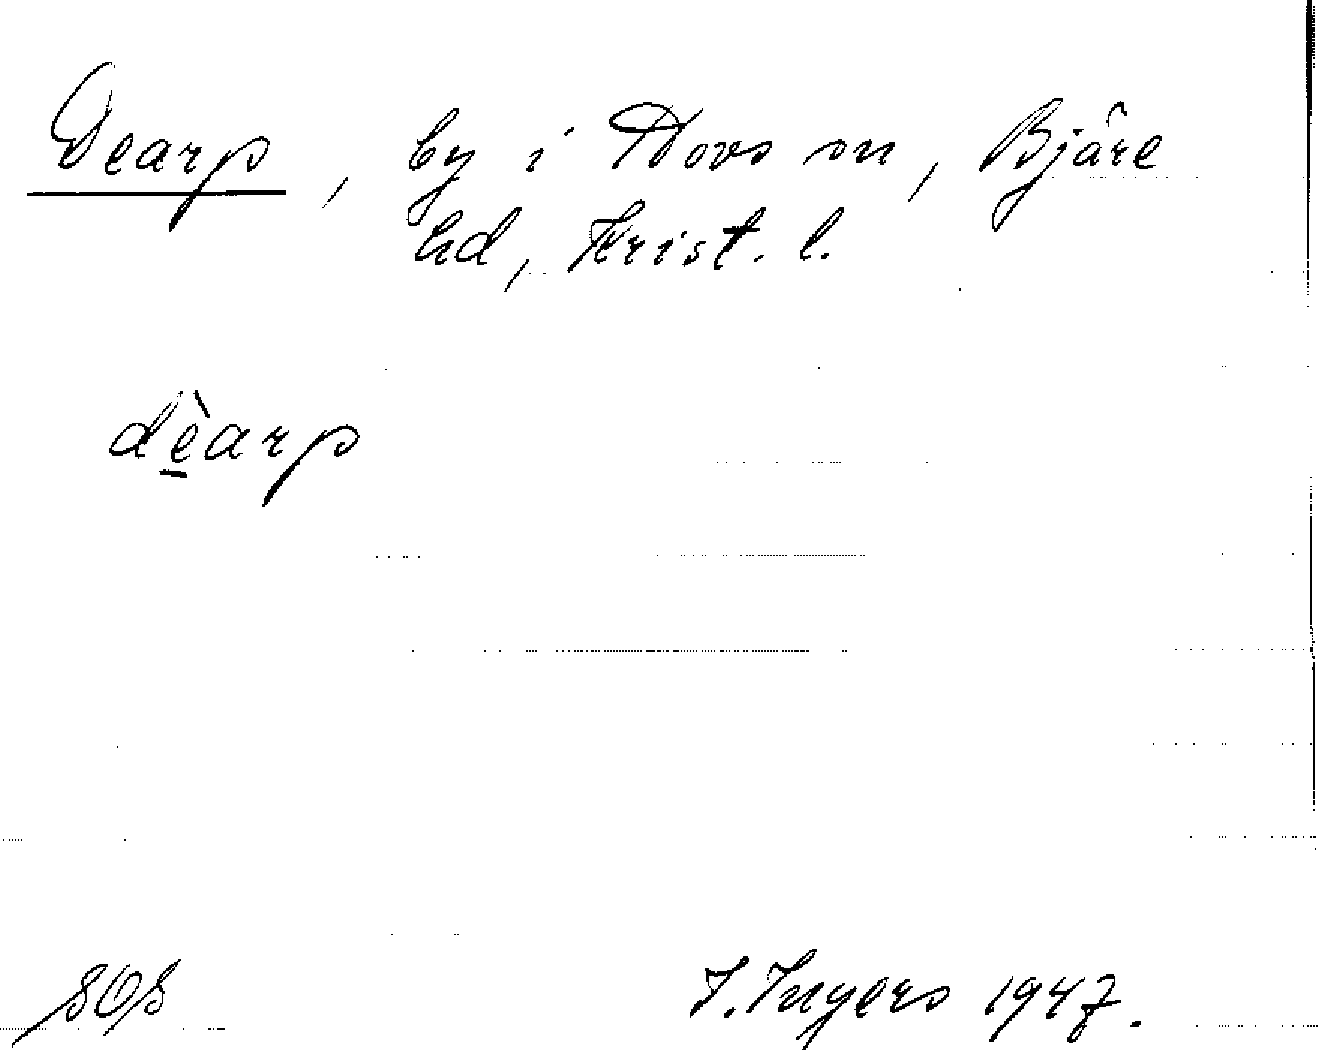 Dearp, by i Hovs sn, Bjäre
hd, Krist. l.
dèarp
SOS
I. Ingers 1947.